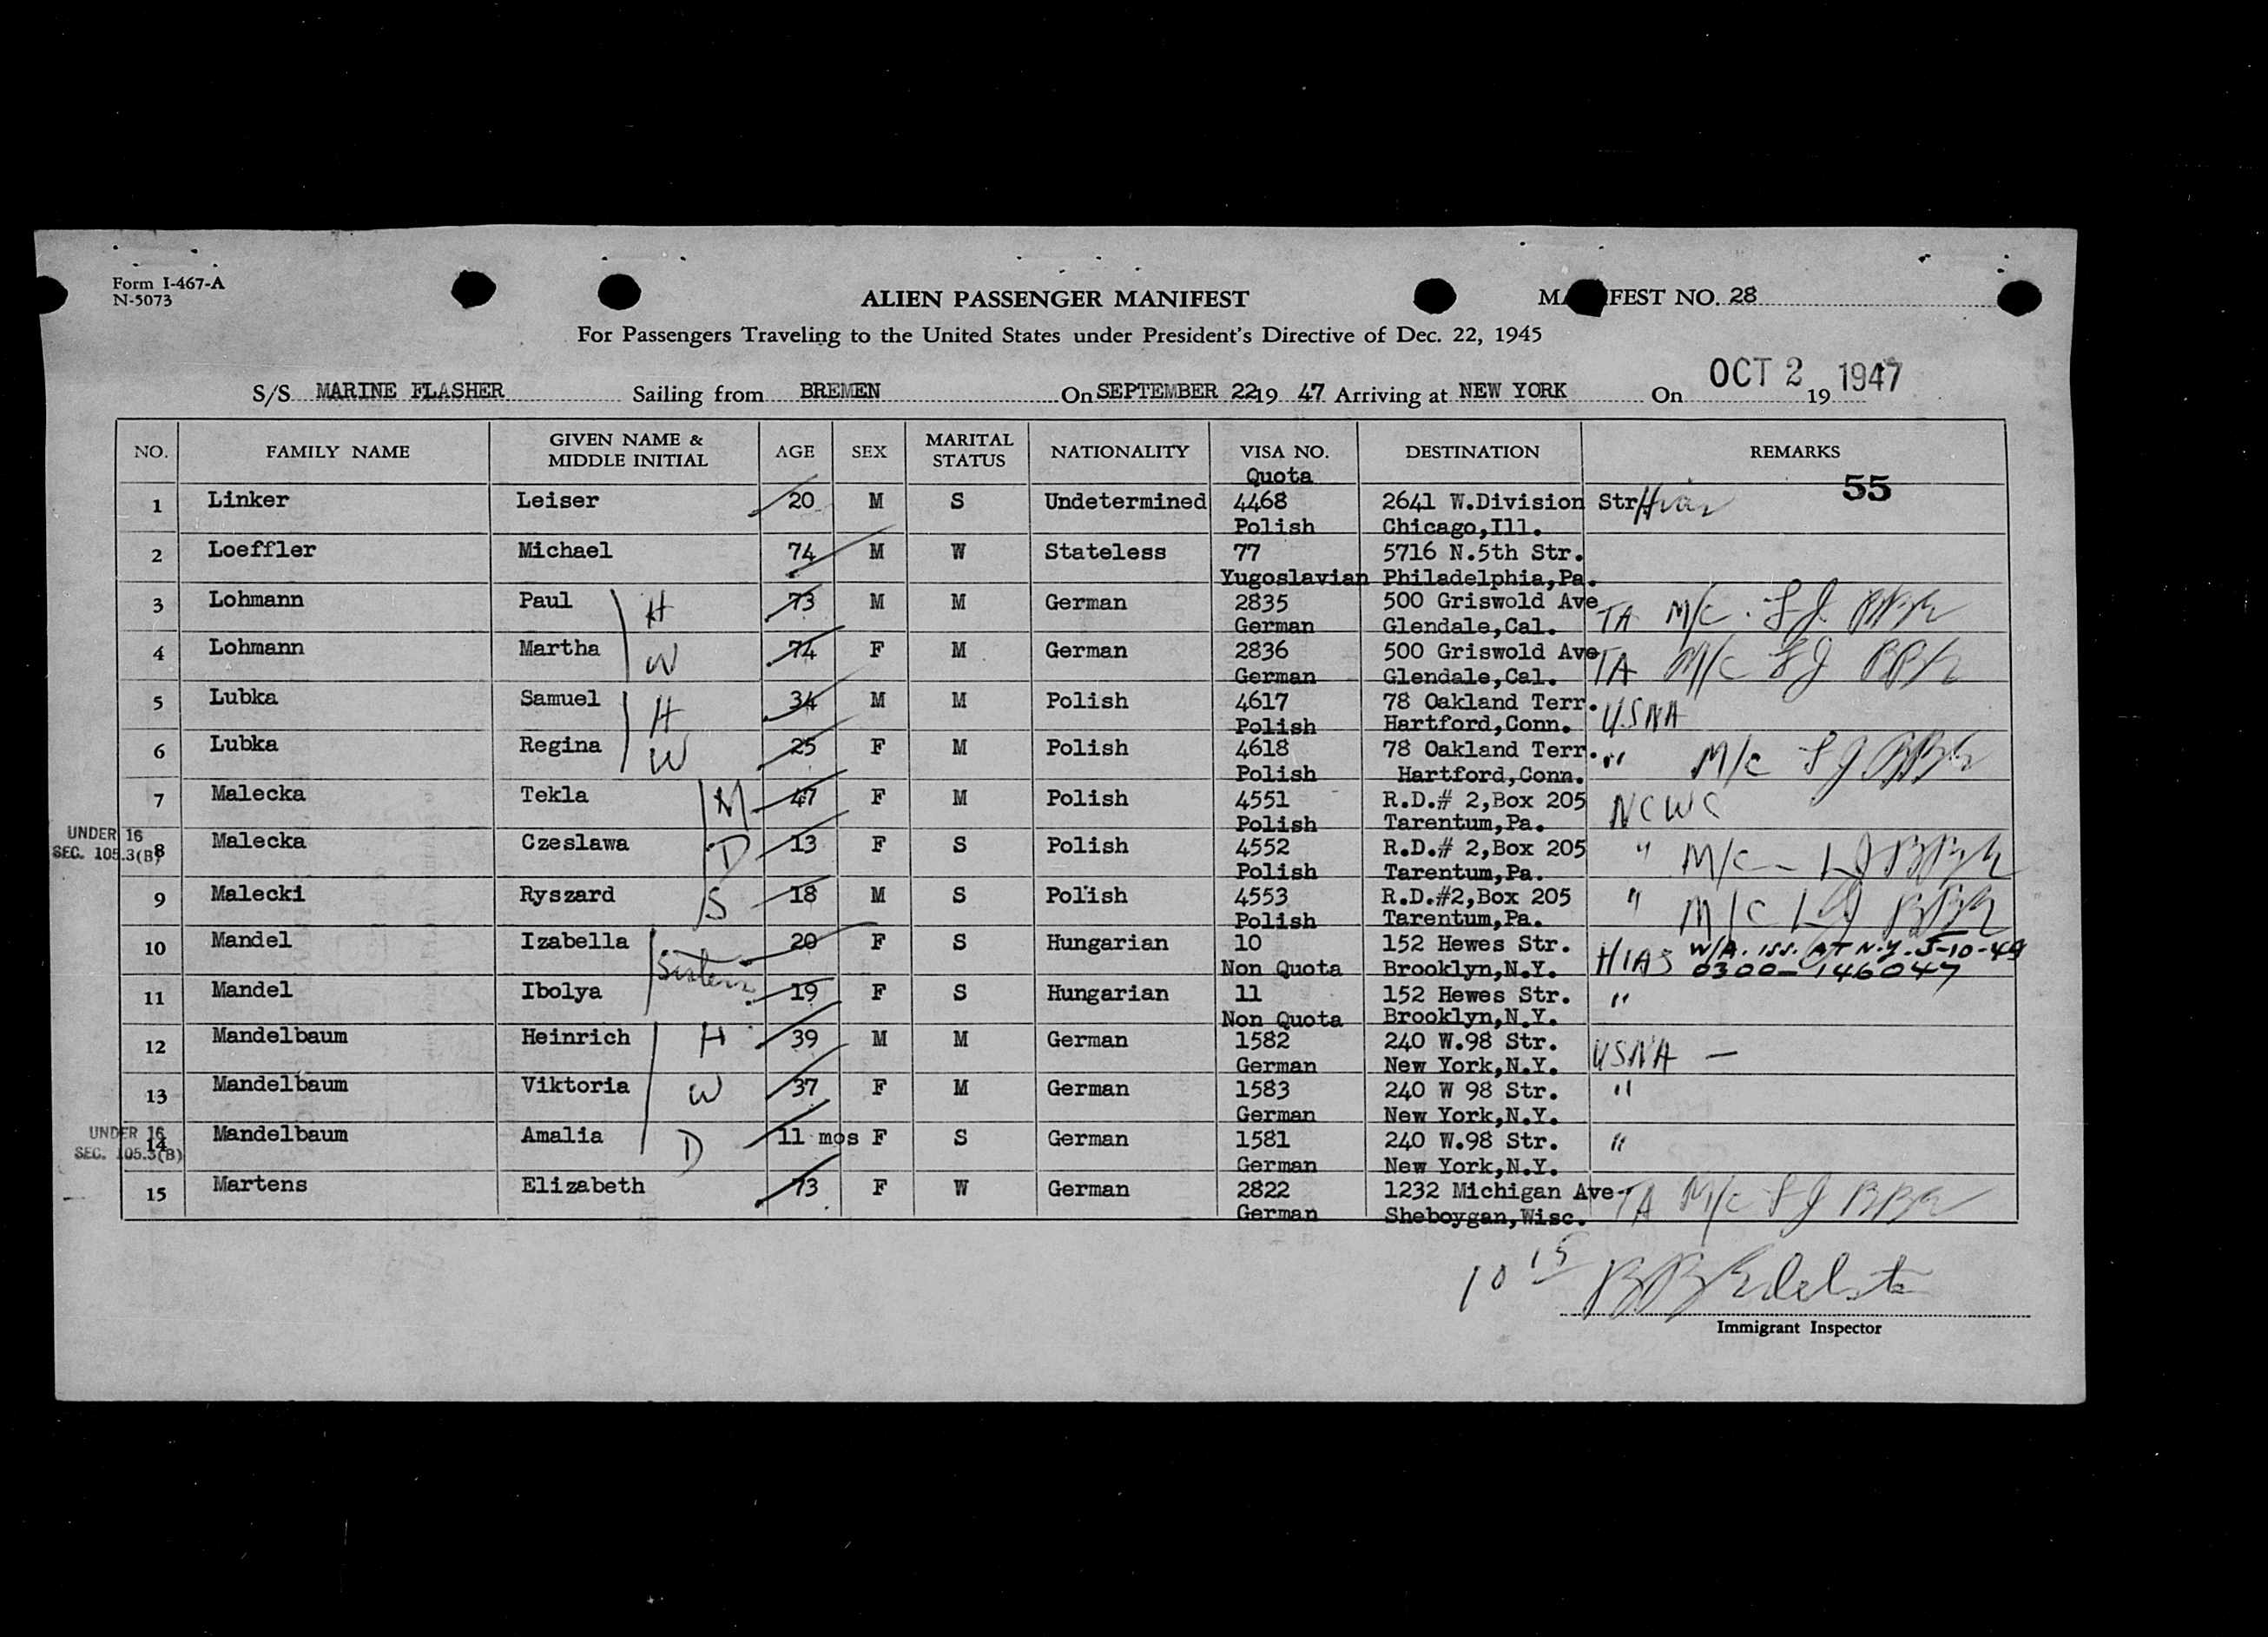 Form I-467-A
N-5073
ALIEN PASSENGER MANIFEST
MANIFEST NO. 28
For Passengers Traveling to the United States under President's Directive of Dec. 22, 1945
S/S MARINE FLASHER Sailing from BREMEN On SEPTEMBER 22 19 47 Arriving at NEW YORK On OCT 2 1947 19
NO. FAMILY NAME GIVEN NAME & MIDDLE INITIAL AGE SEX MARITAL STATUS NATIONALITY VISA NO. DESTINATION REMARKS
Quota
55
1 Linker Leiser 20 M S Undetermined 4468 2641 W.Division Str Hias
Polish Chicago,Ill.
2 Loeffler Michael 74 M W Stateless 77 5716 N.5th Str.
Yugoslavian Philadelphia,Pa.
3 Lohmann Paul H 73 M M German 2835 500 Griswold Ave
German Glendale,Cal. TA M/C
4 Lohmann Martha W 74 F M German 2836 500 Griswold Ave
German Glendale,Cal. TA M/C
5 Lubka Samuel H 34 M M Polish 4617 78 Oakland Terr.
Polish Hartford,Conn. USNA
6 Lubka Regina W 25 F M Polish 4618 78 Oakland Terr. " M/C
Polish Hartford,Conn.
7 Malecka Tekla M 47 F M Polish 4551 R.D.# 2,Box 205 NCWC
Polish Tarentum,Pa.
UNDER 16
SEC. 105.3(B)
8 Malecka Czeslawa D 13 F S Polish 4552 R.D.# 2,Box 205 " M/C
Polish Tarentum,Pa.
9 Malecki Ryszard S 18 M S Polish 4553 R.D.#2,Box 205 " M/C
Polish Tarentum,Pa.
10 Mandel Izabella Sisters 20 F S Hungarian 10 152 Hewes Str. HIAS W/A. ISS. AT N.Y. 5-10-49
Non Quota Brooklyn,N.Y. 0300-146047
11 Mandel Ibolya 19 F S Hungarian 11 152 Hewes Str. "
Non Quota Brooklyn,N.Y.
12 Mandelbaum Heinrich H 39 M M German 1582 240 W.98 Str. USNA —
German New York,N.Y.
13 Mandelbaum Viktoria W 37 F M German 1583 240 W 98 Str. "
German New York,N.Y.
UNDER 16
SEC. 105.3(B)
14 Mandelbaum Amalia D 11 mos F S German 1581 240 W.98 Str. "
German New York,N.Y.
15 Martens Elizabeth 73 F W German 2822 1232 Michigan Ave TA M/C
German Sheboygan,Wisc.
10 15
Immigrant Inspector